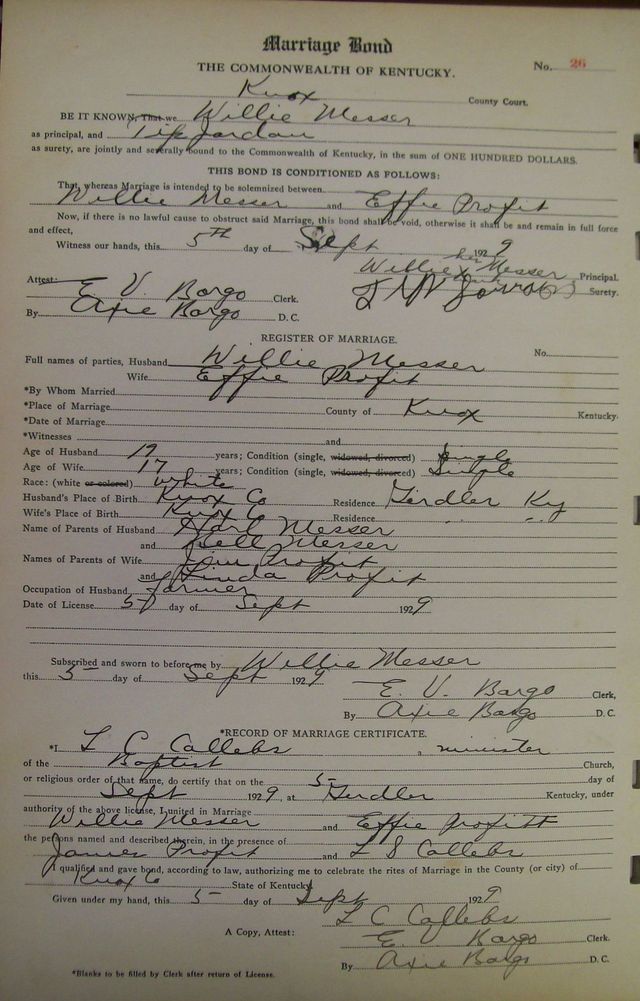 Marriage Bond
THE COMMONWEALTH OF KENTUCKY.
No. 26
Knox County Court.
BE IT KNOWN, That we Willie Messer
as principal, and Tip Jordan
as surety, are jointly and severally bound to the Commonwealth of Kentucky, in the sum of ONE HUNDRED DOLLARS.
THIS BOND IS CONDITIONED AS FOLLOWS:
That, whereas Marriage is intended to be solemnized between
Willie Messer and Effie Profit
Now, if there is no lawful cause to obstruct said Marriage, this bond shall be void, otherwise it shall be and remain in full force
and effect,
Witness our hands, this 5th day of Sept 1929
Willie his x Messer Principal.
Attest: E. V. Bargo Clerk. Surety.
By Axie Bargo D. C.
REGISTER OF MARRIAGE.
No.
Full names of parties, Husband Willie Messer
Wife Effie Profit
*By Whom Married
*Place of Marriage County of Knox Kentucky.
*Date of Marriage
*Witnesses and
Age of Husband 19 years; Condition (single, widowed, divorced) Single
Age of Wife 17 years; Condition (single, widowed, divorced) Single
Race: (white or colored) white
Husband's Place of Birth Knox Co Residence Girdler Ky
Wife's Place of Birth Knox Co Residence " "
Name of Parents of Husband Messer
and Bell Messer
Names of Parents of Wife Jim Profit
and Linda Profit
Occupation of Husband Farmer
Date of License 5 day of Sept 1929
Subscribed and sworn to before me by Willie Messer
this 5 day of Sept 1929
E. V. Bargo Clerk,
By Axie Bargo D. C.
*RECORD OF MARRIAGE CERTIFICATE.
*I L C Callebs, minister
of the Baptist Church,
or religious order of that name, do certify that on the 5 day of
Sept 1929, at Girdler Kentucky, under
authority of the above license, I united in Marriage
Willie Messer and Effie Profitt
the persons named and described therein, in the presence of
James Profit and L S Callebs
I qualified and gave bond, according to law, authorizing me to celebrate the rites of Marriage in the County (or city) of
Knox Co State of Kentucky
Given under my hand, this 5 day of Sept 1929
L C Callebs
A Copy, Attest: E. Bargo Clerk.
By Axie Bargo D. C.
*Blanks to be filled by Clerk after return of License.